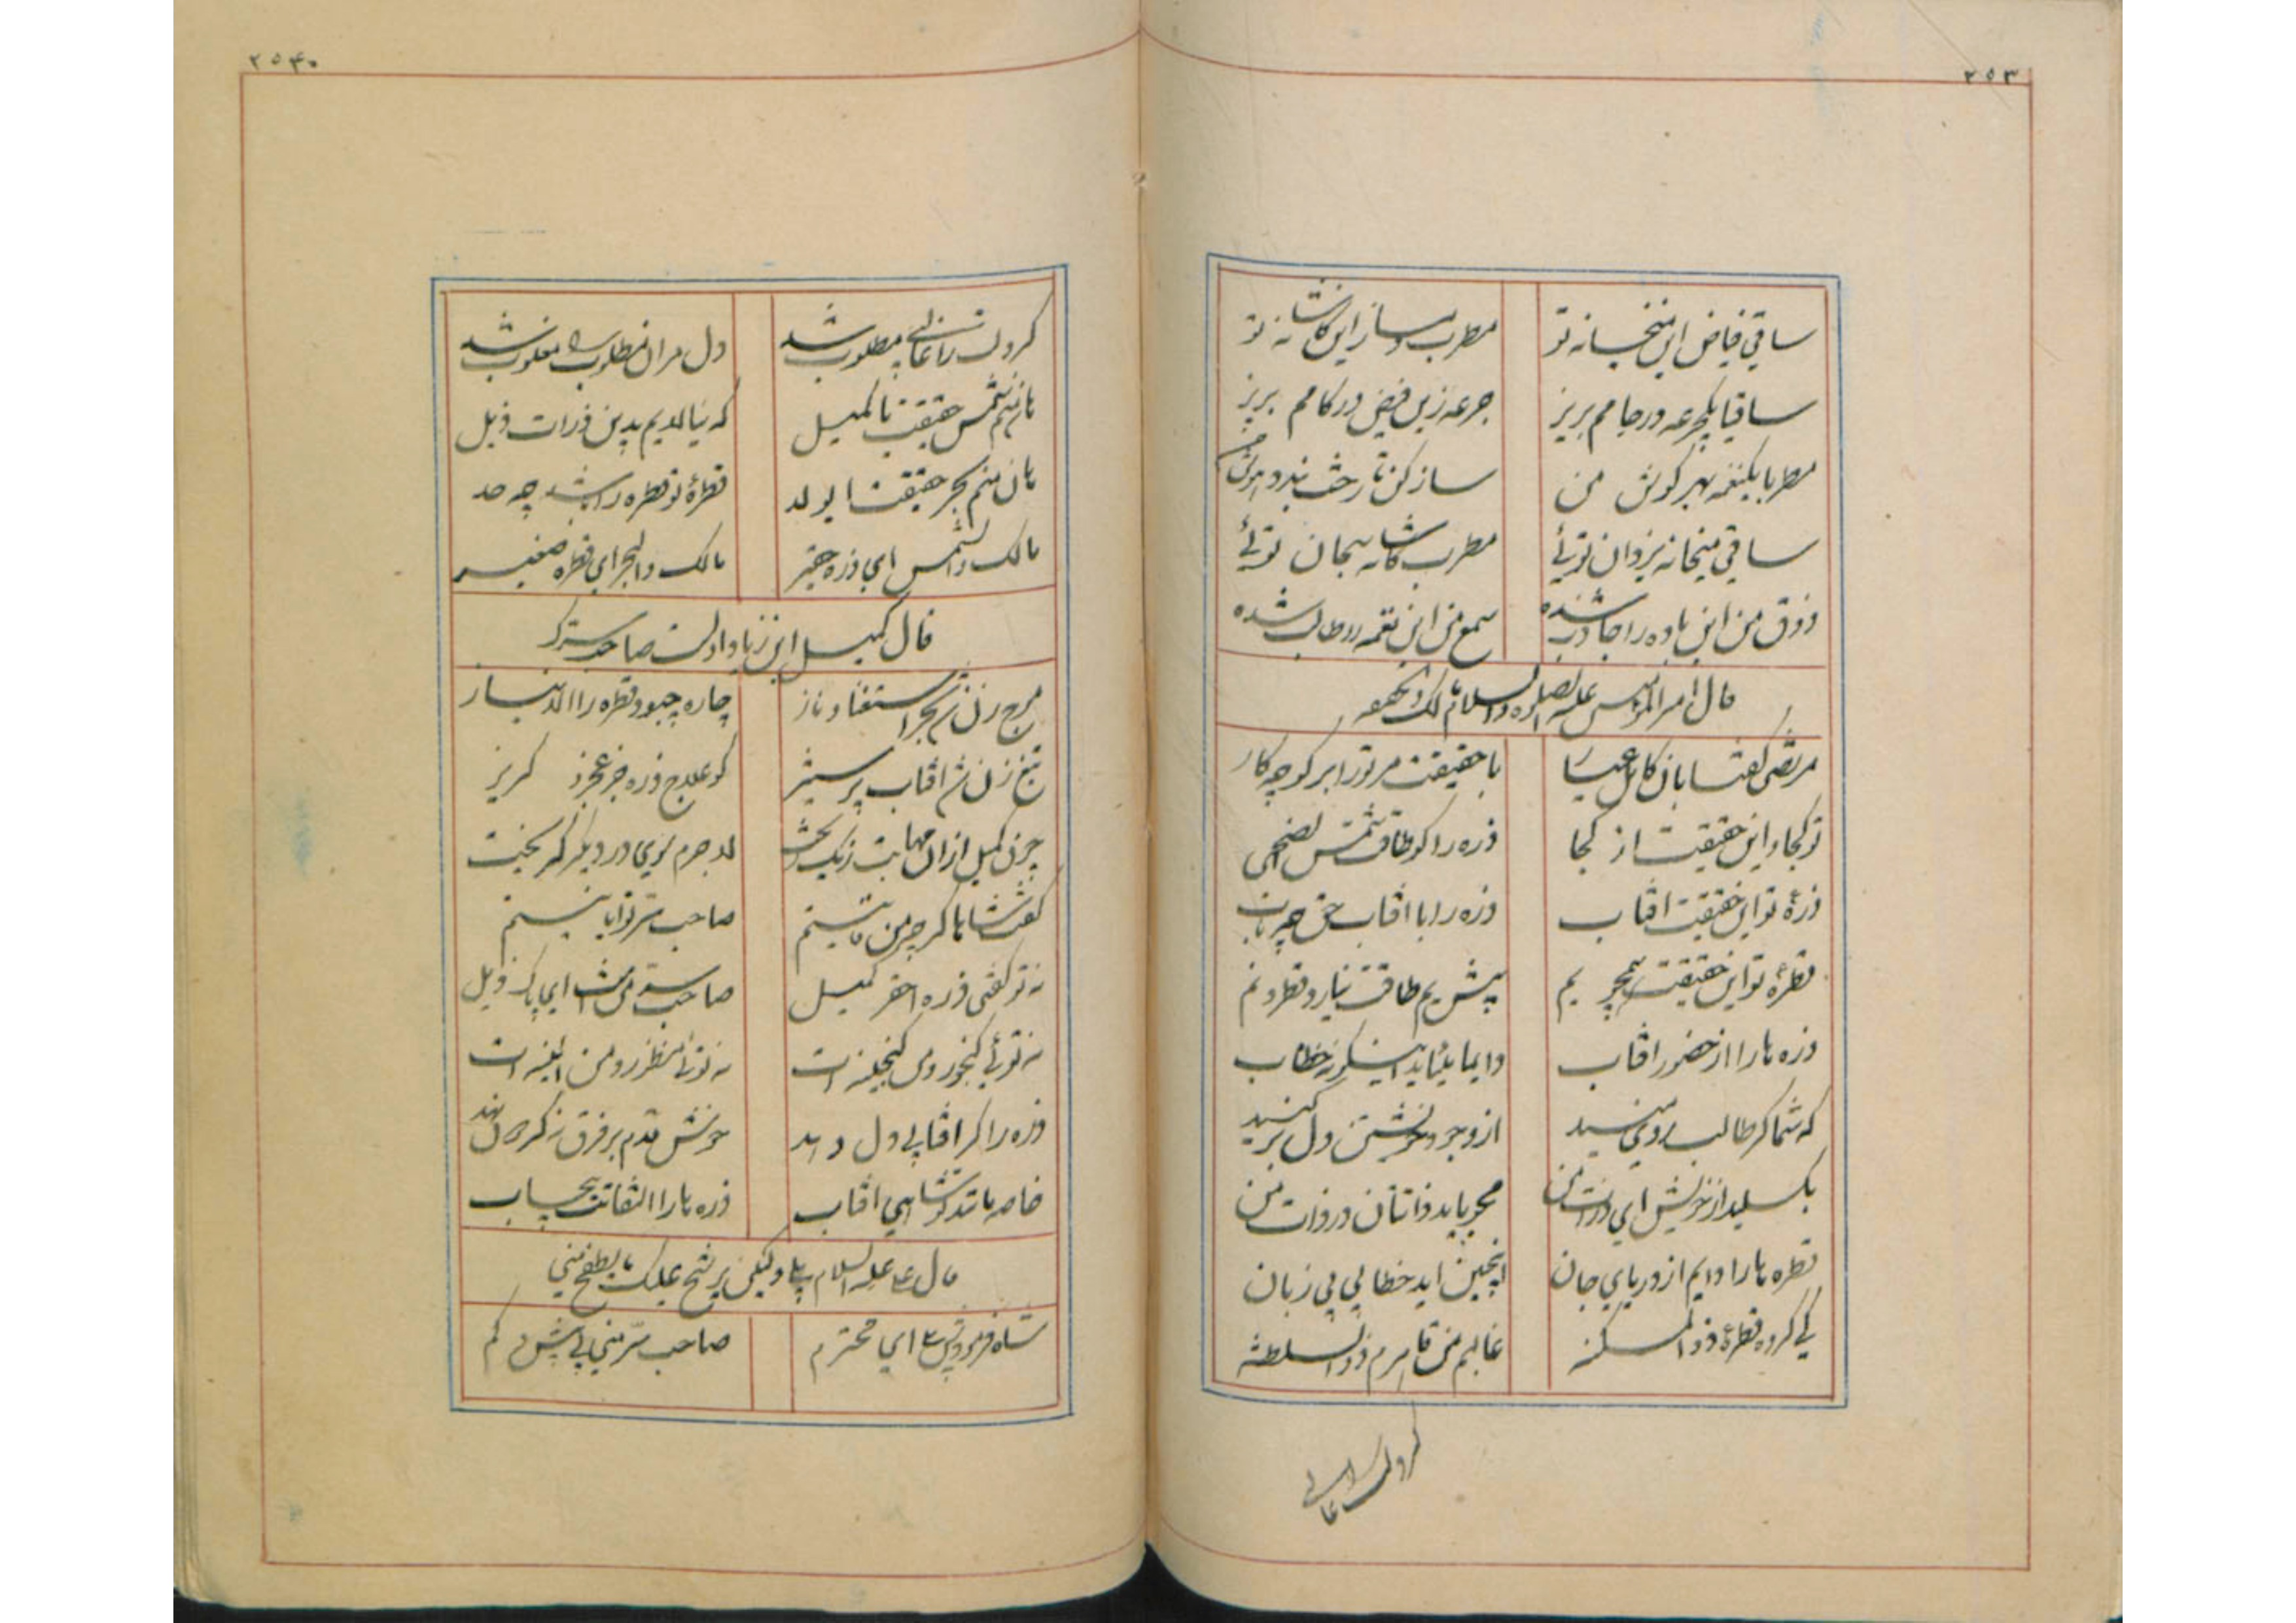 ۲۵۳
ساقی فیاض این میخانه تو مطرب دمساز این کاشانه تو
ساقیا یکجرعه در جامم بریز جرعه زین فیض در کامم بریز
مطربا یکنغمه بهر گوش من ساز کن تا رخت بندد هوش من
ساقی میخانه یزدان توئی مطرب کاشانه جان توئی
ذوق من این باده را جاذب شده سمع من این نغمه را طالب شده
قال امیر المؤمنین علیه الصلوة والسلام مالک والحقیقه
مرتضی گفتا بان کامل عیار با حقیقت مر تو را برگو چه کار
تو کجا و این حقیقت از کجا ذره را کو طاقت شمس الضحی
ذرهٔ تو این حقیقت افتاب ذره را با افتاب حق چه تاب
قطرهٔ تو این حقیقت همچو یم پیش یم طاقت نیارد قطره نم
ذره ها را از حضور افتاب دایما میاید اینگونه خطاب
که شما گر طالب روی منید از وجود خویشتن دل بر کنید
بگسلید از خویش ای ذرات من محو باید ذاتتان در ذات من
قطره ها را دایم از دریای جان اینچنین اید خطابی بی زبان
کی گروه قطرهٔ ذو المسکنه غالبم من قاهرم ذو السلطنه
گر دلت را غالبی
۲۵۴۰
گر دلت را غالبی مطلوب شد دل مر ان مطلوب را مغلوب شد
هان منم شمس حقیقت یا کمیل که نیالدیم بدین ذرات ذیل
هان منم بحر حقیقت ای ولد قطرهٔ تو قطره را باشد چه حد
مالک والشمس ای ذره حقیر مالک والبحر ای قطره صغیر
قال کمیل ابن زیاد اولست صاحب سرک
موج زن شد بحر استغنا و ناز چاره چبود قطره را الا نیاز
تیغ زن شد افتاب پر ستیز کو علاج ذره جز عجز و گریز
چون کمیل از ان مهابت رنگ ریخت لاجرم سوی در دیگر گریخت
گفت شاها گر چه من فانیستم صاحب سر تو ایا نیستم
نه تو گفتی ذره احقر کمیل صاحب سر منست ای پاک ذیل
نه توئی گنجور و من گنجینه ات نه توئی منظور و من ائینه ات
ذره را گر افتابی دل دهد خوش قدم بر فرق نه گردون نهد
خاصه مانند تو شاهی افتاب ذره ها را التفاتت بیحساب
قال علی علیه السلام بلی ولیکن یرشح علیک ما یطفح منی
شاه فرمودش که ای محترم صاحب سر منی بی بیش و کم